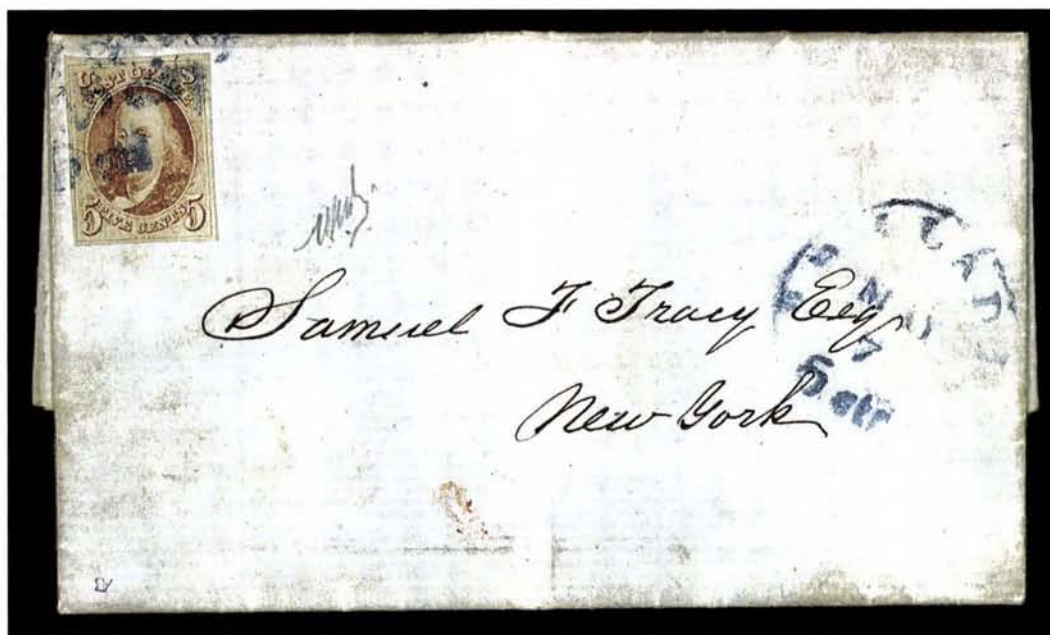 U S
POST OFFICE
5 FIVE CENTS 5
Samuel F Tracy Esq
New York
5 cts